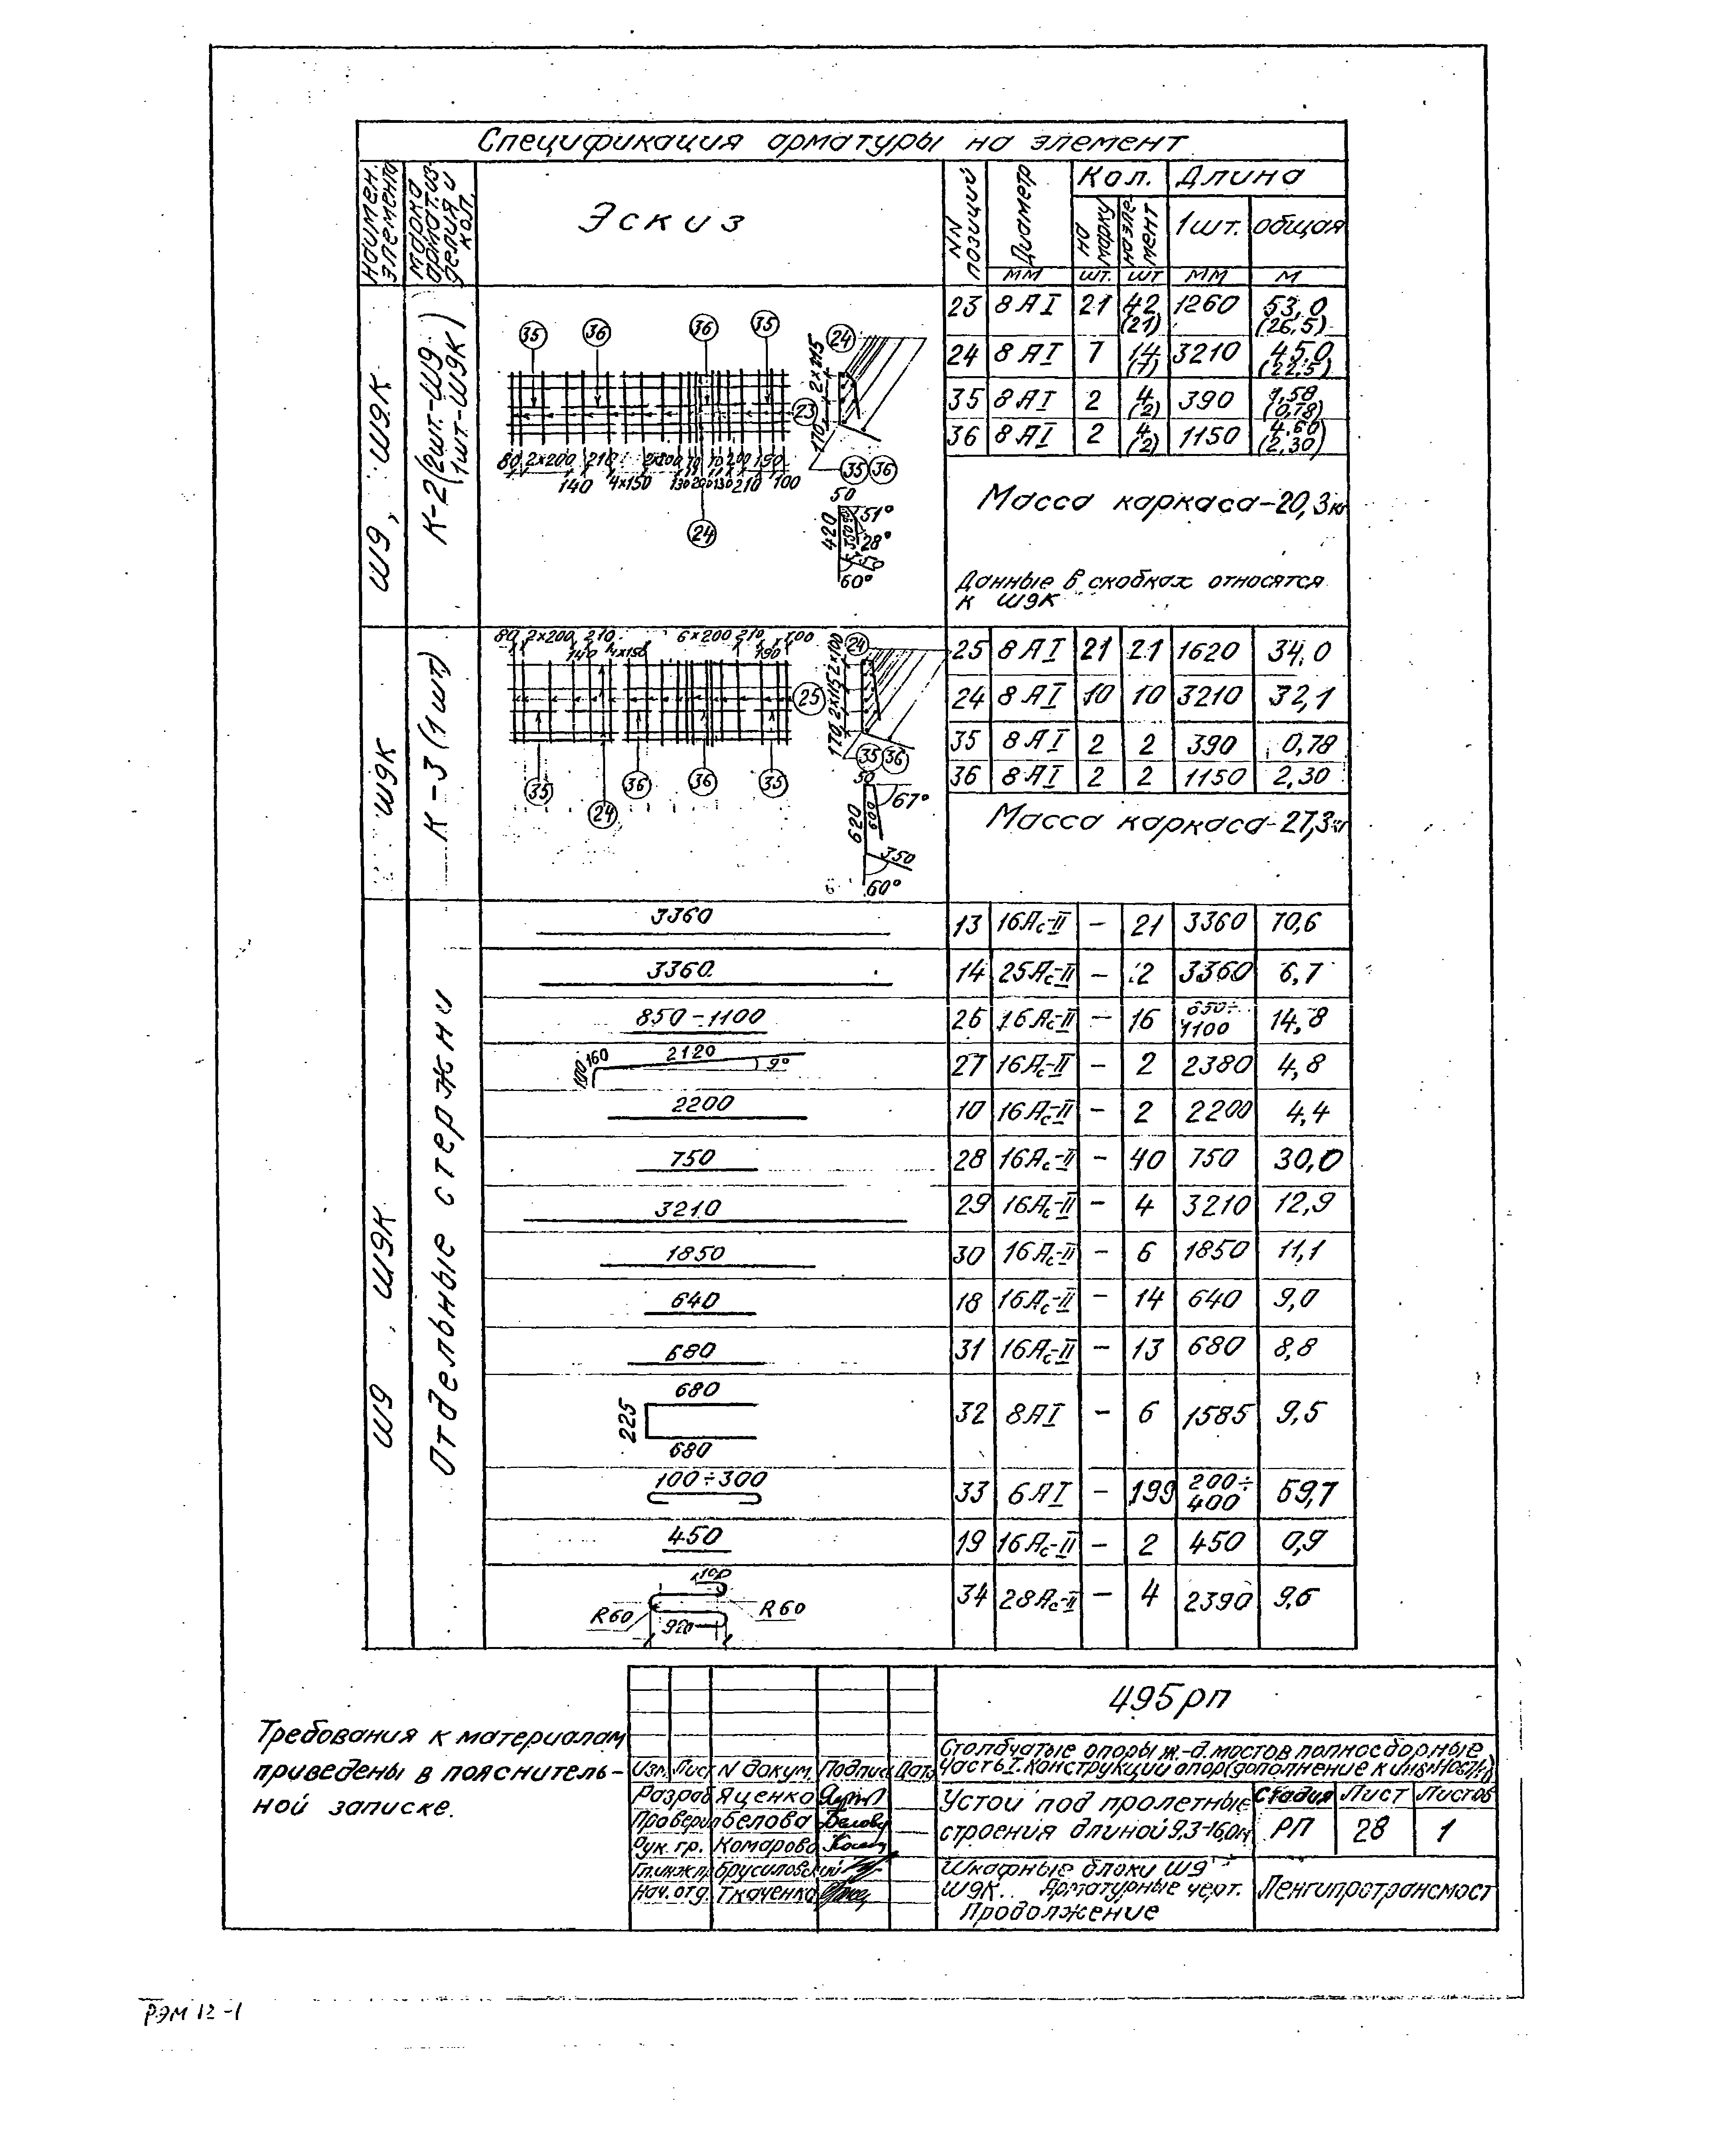 Спецификация арматуры на элемент
Наимен. элемента
Марка армат.изделия и кол.
Эскиз
NN позиций
Диаметр
Кол.
Длина
на марку
на элемент
1шт.
общая
мм шт. шт мм м
Ш9, Ш9К
К-2 (2шт.-Ш9 1шт-Ш9К)
35 36 36 35 24
2×115
170
23
80 2×200 210 2×200 70 70 200 150
140 4×150 130 200 130 210 100
35 36
24
50
51°
420
350
28°
60°
23 8АI 21 42 (21) 1260 53,0 (26,5)
24 8АI 7 14 (7) 3210 45,0 (22,5)
35 8АI 2 4 (2) 390 1,58 (0,78)
36 8АI 2 4 (2) 1150 4,60 (2,30)
Масса каркаса-20,3кг
Данные в скобках относятся
к Ш9К
Ш9К
К-3 (1шт)
80 2×200 210 6×200 210 100
140 4×150 190
24
170 2×115 2×100
25
35 36 36 35
24
35 36
50
67°
620
600
350
60°
25 8АI 21 21 1620 34,0
24 8АI 10 10 3210 32,1
35 8АI 2 2 390 0,78
36 8АI 2 2 1150 2,30
Масса каркаса-27,3кг
Ш9, Ш9К
Отдельные стержни
3360 13 16Ас-II - 21 3360 70,6
3360 14 25Ас-II - 2 3360 6,7
850-1100 26 16Ас-II - 16 650÷1100 14,8
100 160 2120 9° 27 16Ас-II - 2 2380 4,8
2200 10 16Ас-II - 2 2200 4,4
750 28 16Ас-II - 40 750 30,0
3210 29 16Ас-II - 4 3210 12,9
1850 30 16Ас-II - 6 1850 11,1
640 18 16Ас-II - 14 640 9,0
680 31 16Ас-II - 13 680 8,8
680 225 680 32 8АI - 6 1585 9,5
100÷300 33 6АI - 199 200÷400 59,7
450 19 16Ас-II - 2 450 0,9
100 R60 R60 920 34 28Ас-II - 4 2390 9,6
Требования к материалам
приведены в пояснитель-
ной записке.
495рп
Столбчатые опоры ж.-д. мостов полносборные
Часть I. Конструкции опор (дополнение к инв.№
Изм. Лист N докум. Подпись Дата
Разраб Яценко
Проверил Белова
Рук. гр. Комарова
Гл.инж.пр Брусиловский
Нач.отд. Ткаченко
Устои под пролетные
строения длиной 9,3-16,0м
Стадия Лист Листов
РП 28 1
Шкафные блоки Ш9
Ш9К. Арматурные черт.
Продолжение
Ленгипротрансмост
РЭМ 12-1